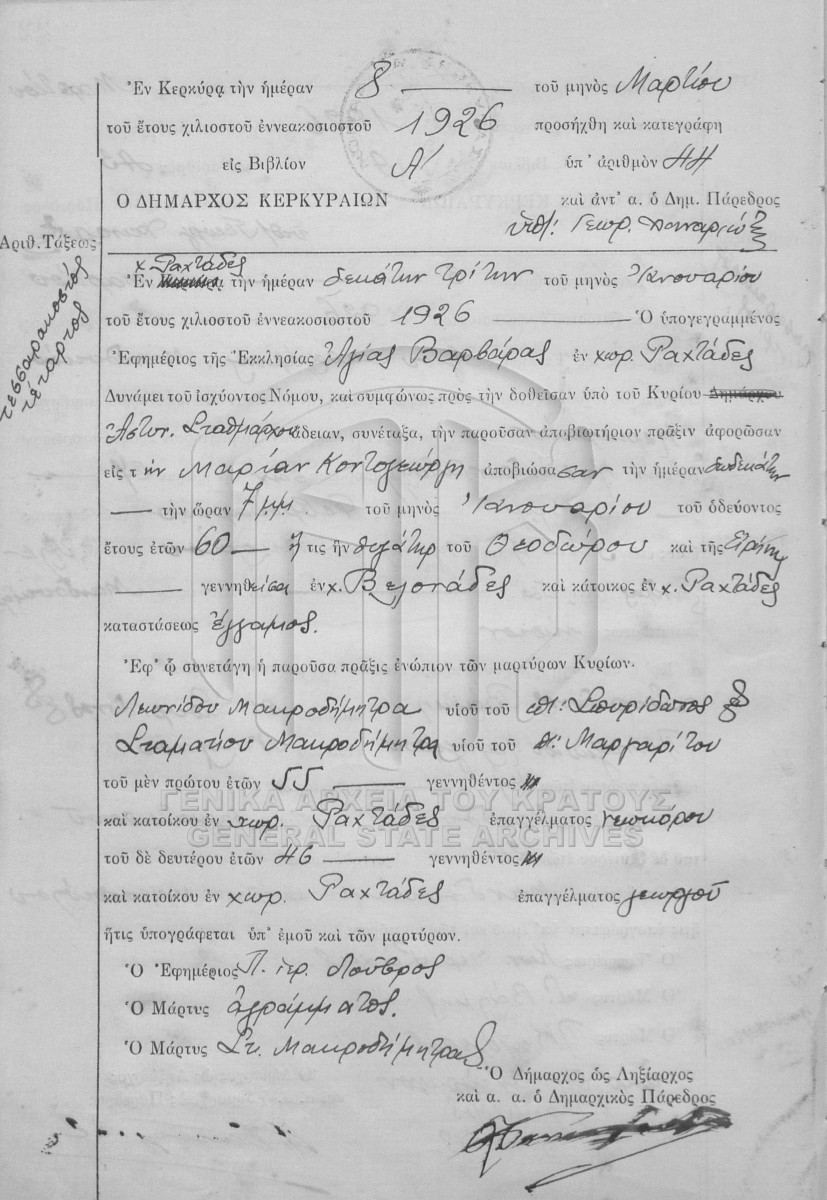 Ἐν Κερκύρᾳ τὴν ἡμέραν 8 τοῦ μηνὸς Μαρτίου
τοῦ ἔτους χιλιοστοῦ ἐννεακοσιοστοῦ 1926 προσήχθη καὶ κατεγράφη
εἰς Βιβλίον Α' ὑπ' ἀριθμὸν 44
Ο ΔΗΜΑΡΧΟΣ ΚΕΡΚΥΡΑΙΩΝ καὶ ἀντ' α. ὁ Δημ. Πάρεδρος
Γεωρ.
Ἀριθ. Τάξεως
τεσσαρακοστὸς
τέταρτος
χ. Ραχτάδες
Ἐν τὴν ἡμέραν δεκάτην τρίτην τοῦ μηνὸς Ἰανουαρίου
τοῦ ἔτους χιλιοστοῦ ἐννεακοσιοστοῦ 1926 Ὁ ὑπογεγραμμένος
Ἐφημέριος τῆς Ἐκκλησίας Ἁγίας Βαρβάρας ἐν χωρ. Ραχτάδες
Δυνάμει τοῦ ἰσχύοντος Νόμου, καὶ συμφώνως πρὸς τὴν δοθεῖσαν ὑπὸ τοῦ Κυρίου Δημάρχου
Ἀστυν. Σταθμάρχου ἄδειαν, συνέταξα, τὴν παροῦσαν ἀποβιωτήριον πρᾶξιν ἀφορῶσαν
εἰς τὴν Μαρίαν Κοντογεώργη ἀποβιώσασαν τὴν ἡμέραν δωδεκάτην
τὴν ὥραν 7 μμ. τοῦ μηνὸς Ἰανουαρίου τοῦ ὁδεύοντος
ἔτους ἐτῶν 60 ἥτις ἦν θυγάτηρ τοῦ Θεοδώρου καὶ τῆς Εἰρήνης
γεννηθεῖσα ἐν χ. Βελονάδες καὶ κάτοικος ἐν χ. Ραχτάδες
καταστάσεως ἔγγαμος.
Ἐφ' ᾧ συνετάγη ἡ παροῦσα πρᾶξις ἐνώπιον τῶν μαρτύρων Κυρίων.
Λεωνίδου Μακροδήμητρα υἱοῦ τοῦ ποτ: Σπυρίδωνος
Σταματίου Μακροδήμητρα υἱοῦ τοῦ π: Μαργαρίτου
τοῦ μὲν πρώτου ἐτῶν 55 γεννηθέντος
ΓΕΝΙΚΑ ΑΡΧΕΙΑ ΤΟΥ ΚΡΑΤΟΥΣ
καὶ κατοίκου ἐν χωρ. Ραχτάδες ἐπαγγέλματος
GENERAL STATE ARCHIVES
τοῦ δὲ δευτέρου ἐτῶν 46 γεννηθέντος
καὶ κατοίκου ἐν χωρ. Ραχτάδες ἐπαγγέλματος γεωργοῦ
ἥτις ὑπογράφεται ὑπ' ἐμοῦ καὶ τῶν μαρτύρων.
Ὁ Ἐφημέριος Π. ἱερ.
Ὁ Μάρτυς ἀγράμματος.
Ὁ Μάρτυς Στ. Μακροδήμητρας
Ὁ Δήμαρχος ὡς Ληξίαρχος
καὶ α. α. ὁ Δημαρχικὸς Πάρεδρος